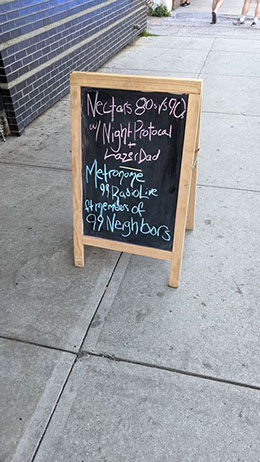 Nectars 80s v 90s
w/ Night Protocal
+
LazerDad
Metronome
99 Radio Live
ft members of
99 Neighbors